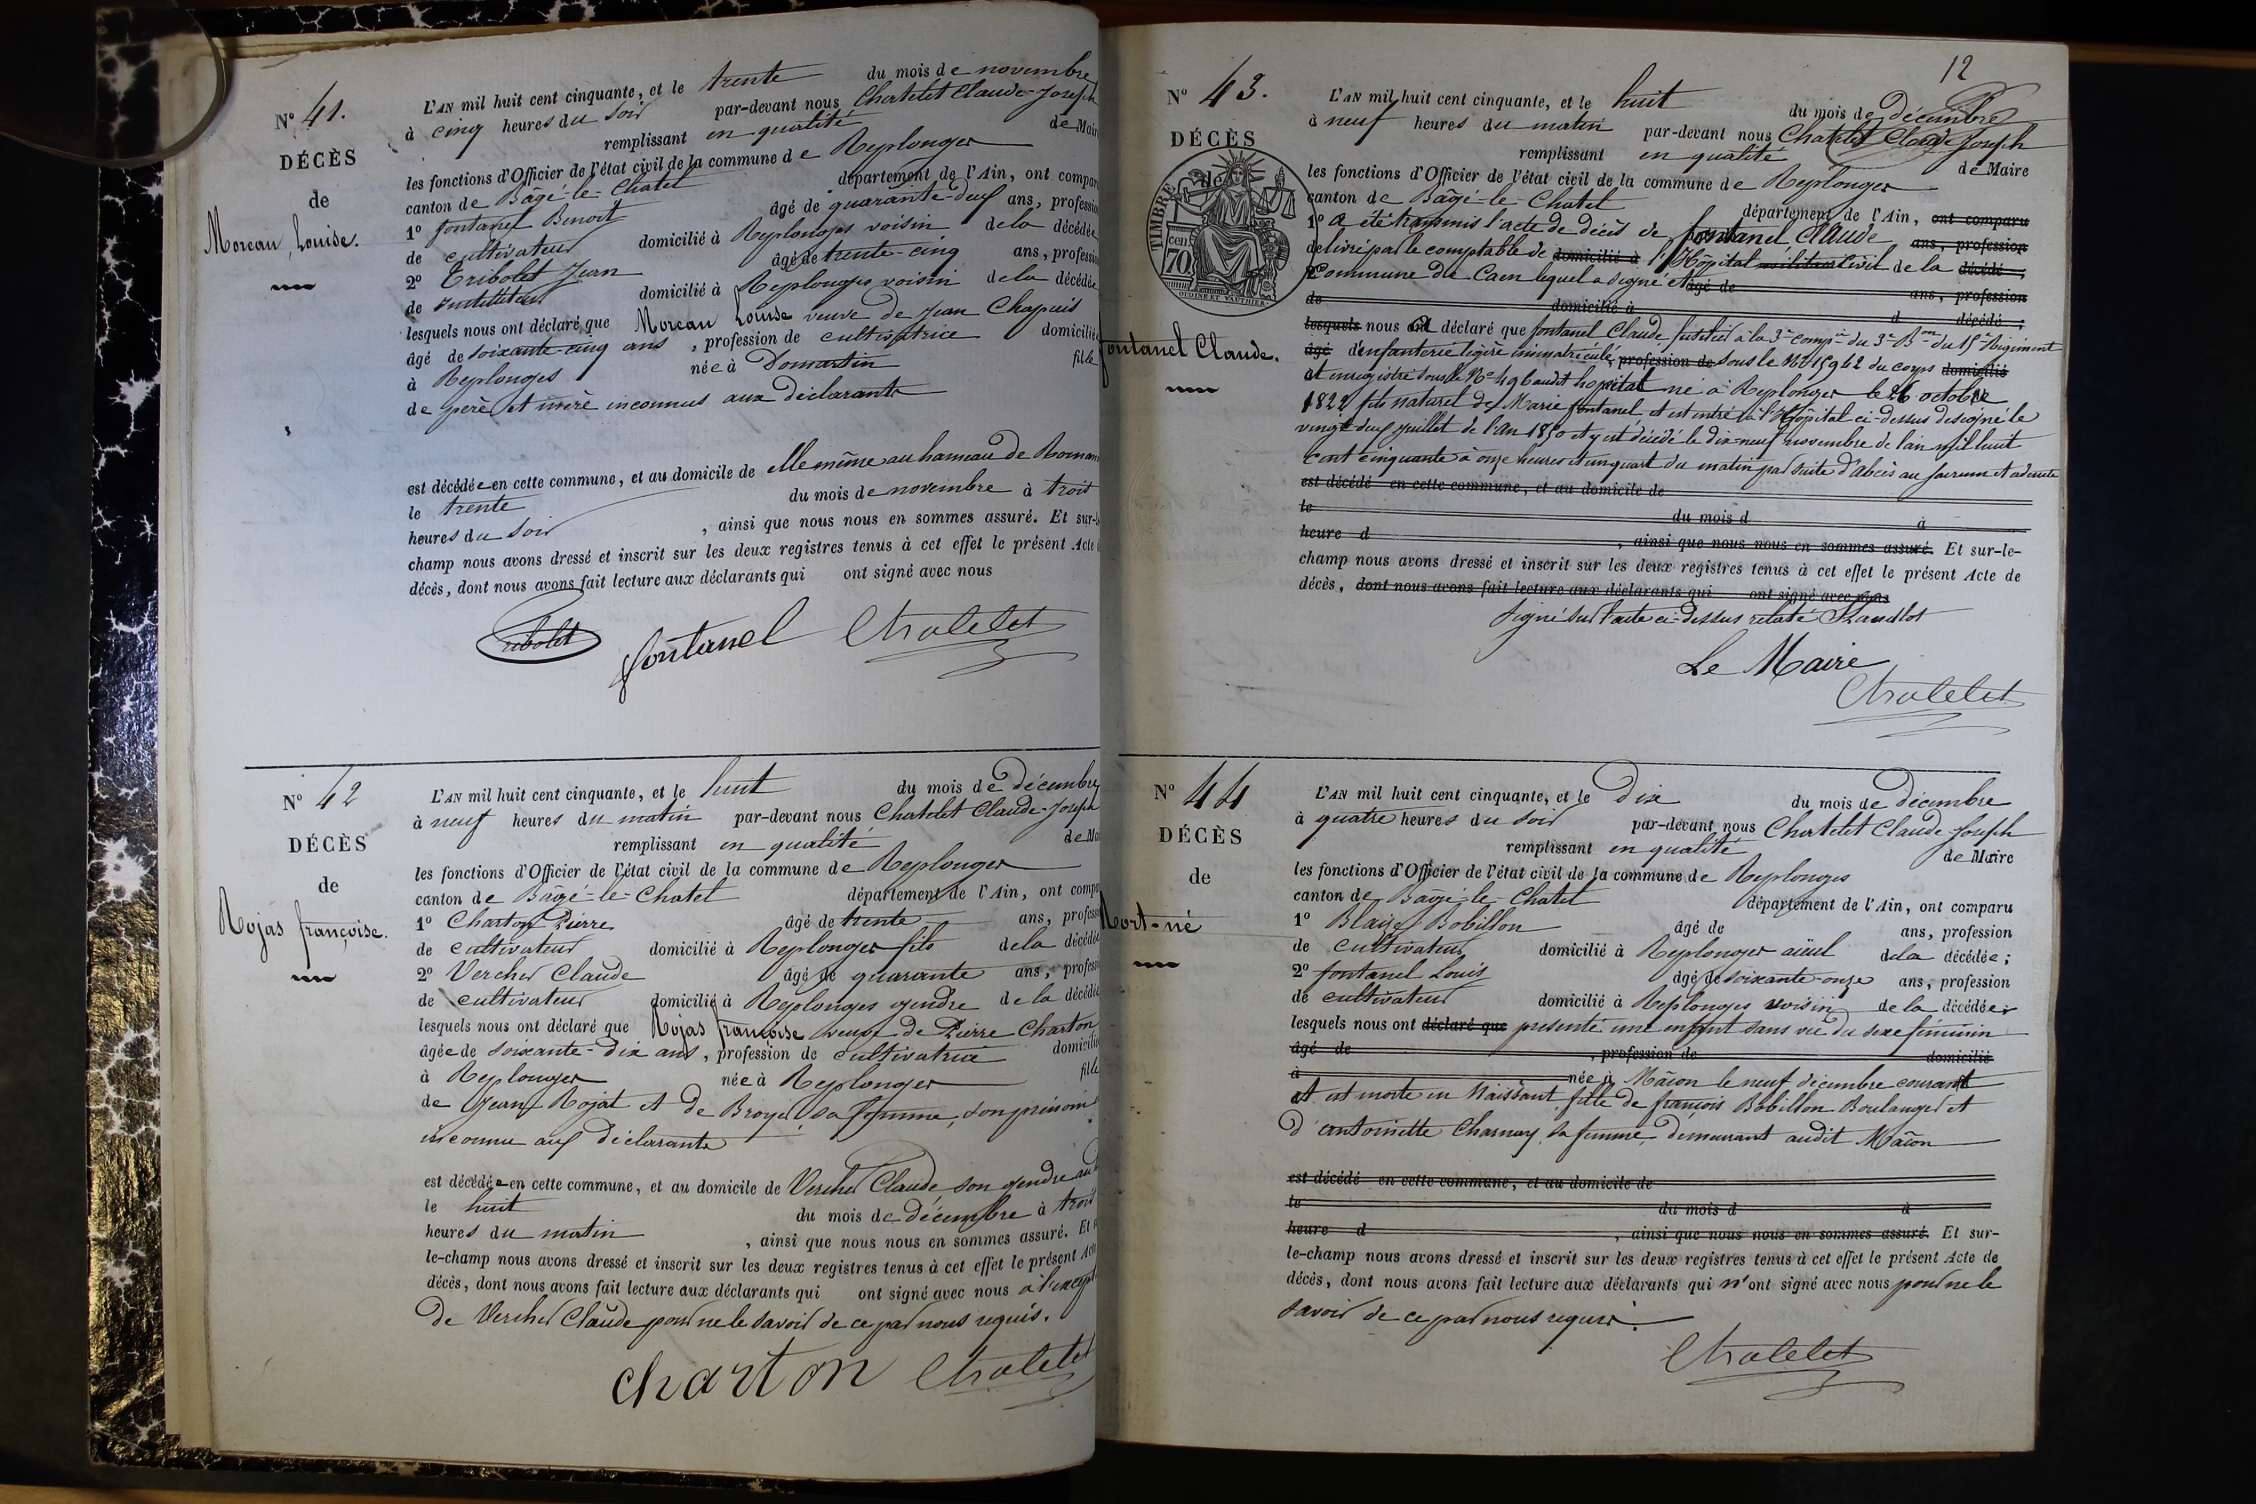 N° 41.
DÉCÈS
de
Moreau, Louise.
L'AN mil huit cent cinquante, et le trente du mois de novembre
à cinq heures du soir par-devant nous Chatelet Claude-Joseph
remplissant en qualité de Mair
les fonctions d'Officier de l'état civil de la commune de Replonges
canton de Bâgé-le-Chatel département de l'Ain, ont compar
1° fontanel Benoit âgé de quarante-deux ans, professio
de cultivateur domicilié à Replonges voisin de la décédée
2° Tribolet Jean âgé de trente-cinq ans, professio
de instituteur domicilié à Replonges voisin de la décédée
lesquels nous ont déclaré que Moreau Louise veuve de Jean Chapuis
âgé de soixante-cinq ans, profession de cultivatrice domicilié
à Replonges née à Domartin fille
de père et mère inconnus aux déclarants
est décédée en cette commune, et au domicile de elle même au hameau de Roman
le trente du mois de novembre à trois
heures du soir, ainsi que nous nous en sommes assuré. Et sur-l
champ nous avons dressé et inscrit sur les deux registres tenus à cet effet le présent Acte
décès, dont nous avons fait lecture aux déclarants qui ont signé avec nous
Tribolet fontanel Chatelet
N° 42
DÉCÈS
de
Rojas françoise.
L'AN mil huit cent cinquante, et le huit du mois de décembre
à neuf heures du matin par-devant nous Chatelet Claude-Joseph
remplissant en qualité de Ma
les fonctions d'Officier de l'état civil de la commune de Replonges
canton de Bâgé-le-Chatel département de l'Ain, ont compa
1° Charton Pierre âgé de trente ans, profess
de cultivateur domicilié à Replonges fils de la décédée
2° Vercher Claude âgé de quarante ans, profess
de cultivateur domicilié à Replonges gendre de la décédée
lesquels nous ont déclaré que Rojas françoise veuve de Pierre Charton
âgée de soixante-dix ans, profession de cultivatrice domicilié
à Replonges née à Replonges fille
de Jean Rojat et de Broyer sa femme, son prénom
inconnu aux déclarants
est décédée en cette commune, et au domicile de Vercher Claude son gendre au
le huit du mois de décembre à trois
heures du matin, ainsi que nous nous en sommes assuré. Et
le-champ nous avons dressé et inscrit sur les deux registres tenus à cet effet le présent Acte
décès, dont nous avons fait lecture aux déclarants qui ont signé avec nous à l'except
de Vercher Claude pour ne le savoir de ce par nous requis.
charton Chatelet
12
N° 43.
DÉCÈS
de
TIMBRE
70 cen
OUDINÉ ET VAUTHIER
fontanel Claude.
L'AN mil huit cent cinquante, et le huit du mois de décembre
à neuf heures du matin par-devant nous Chatelet Claude Joseph
remplissant en qualité de Maire
les fonctions d'Officier de l'état civil de la commune de Replonges
canton de Bâgé-le-Chatel département de l'Ain, ont comparu
1° a été transmis l'acte de décès de fontanel Claude ans, profession
délivré par le comptable de domicilié à l'hôpital militaire Civil de la décédé;
Commune de Caen lequel a signé et âgé de ans, profession
de domicilié à d décédé;
lesquels nous ont déclaré que fontanel Claude, fusilier à la 3e compie du 3e Bon du 15e Régiment
âgé d'infanterie légère immatriculé, profession de sous le N° 15962 du corps domicilié
et enregistré sous le N° 496 audit hopital né à Replonges le 26 octobre
1822 fils naturel de Marie fontanel et est entré à l'Hôpital ci-dessus désigné le
vingt-deux juillet de l'an 1850 et y est décédé le dix-neuf novembre de l'an mil huit
cent cinquante à onze heures et un quart du matin par suite d'abcès au
est décédé en cette commune, et au domicile de
le du mois d à
heure d, ainsi que nous nous en sommes assuré. Et sur-le-
champ nous avons dressé et inscrit sur les deux registres tenus à cet effet le présent Acte de
décès, dont nous avons fait lecture aux déclarants qui ont signé avec nous
Signé sur l'acte ci-dessus relaté
Le Maire
Chatelet
N° 44
DÉCÈS
de
Mort-né
L'AN mil huit cent cinquante, et le dix du mois de décembre
à quatre heures du soir par-devant nous Chatelet Claude Joseph
remplissant en qualité de Maire
les fonctions d'Officier de l'état civil de la commune de Replonges
canton de Bâgé-le-Chatel département de l'Ain, ont comparu
1° Blaise Bobillon âgé de ans, profession
de cultivateur domicilié à Replonges aïeul de la décédée;
2° fontanel Louis âgé de soixante-onze ans, profession
de cultivateur domicilié à Replonges voisin de la décédée;
lesquels nous ont déclaré que présenté une enfant sans vie du sexe féminin
âgé de, profession de domicilié
à née à Mâcon le neuf décembre courant
et est morte en naissant fille de françois Bobillon Boulanger et
d'antoinette Charnay, sa femme, demeurant audit Mâcon
est décédé en cette commune, et au domicile de
le du mois d à
heure d, ainsi que nous nous en sommes assuré. Et sur-
le-champ nous avons dressé et inscrit sur les deux registres tenus à cet effet le présent Acte de
décès, dont nous avons fait lecture aux déclarants qui n'ont signé avec nous pour ne le
savoir de ce par nous requis.
Chatelet